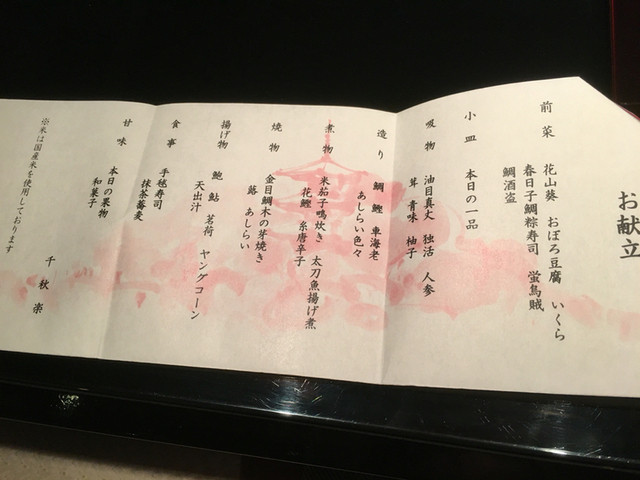 お献立
前菜
花山葵 おぼろ豆腐 いくら
春日子鯛粽寿司 蛍烏賊
鯛酒盗
小皿
本日の一品
吸物
油目真丈 独活 人参
茸 青味 柚子
造り
鯛 鰹 車海老
あしらい色々
煮物
米茄子鴫炊き 太刀魚揚げ煮
花鰹 糸唐辛子
焼物
金目鯛木の芽焼き
蕗 あしらい
揚げ物
鮑 鮎 茗荷 ヤングコーン
天出汁
食事
手毬寿司
抹茶蕎麦
甘味
本日の果物
和菓子
※米は国産米を使用しております
千秋楽